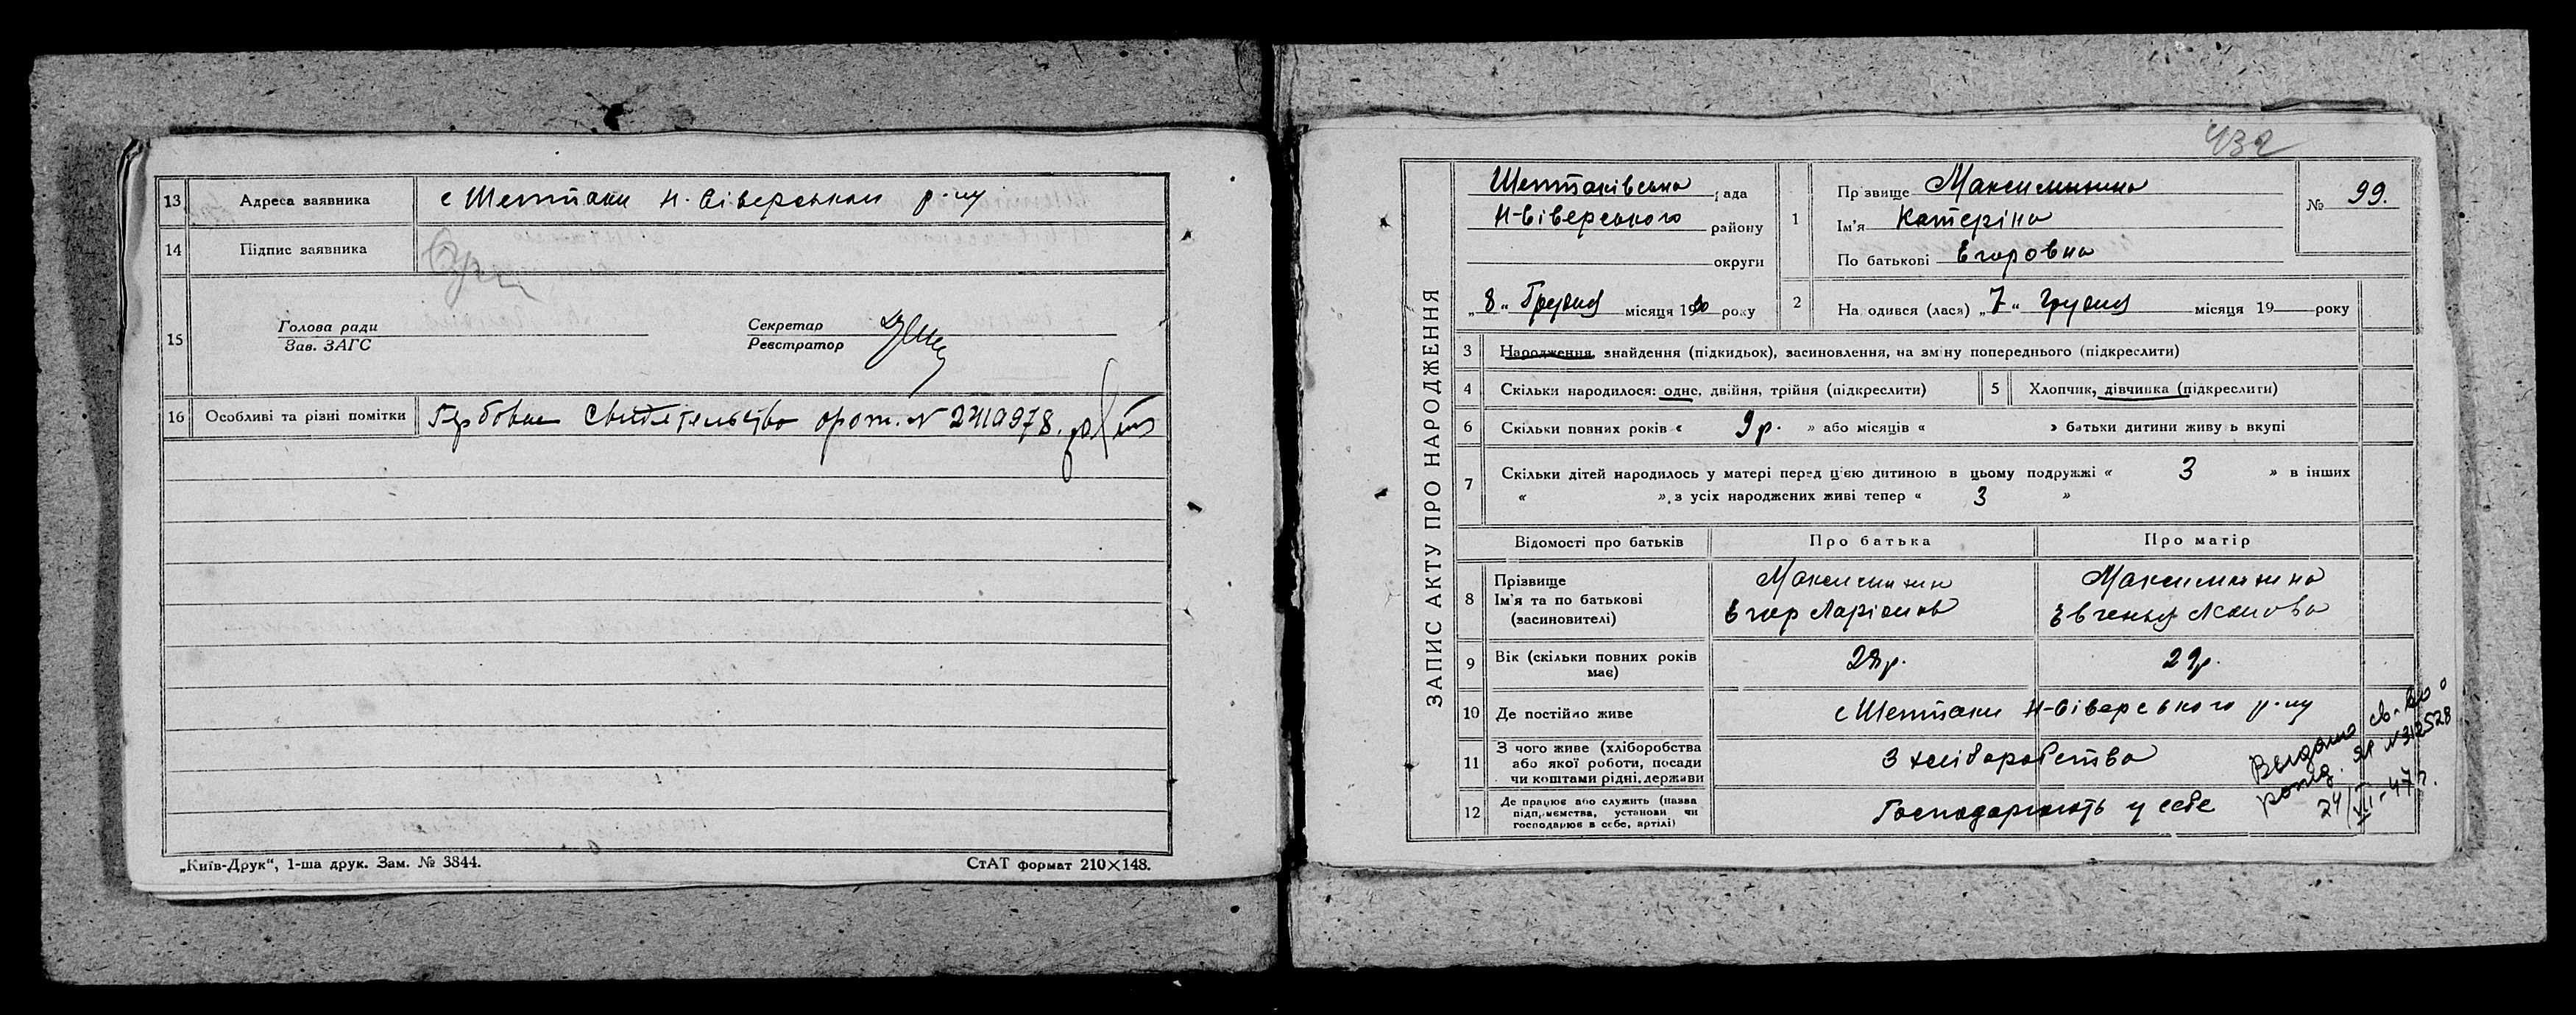 13 Адреса заявника с Шептаки Н-Сіверськ р-ну
14 Підпис заявника
15 Голова ради
Зав. ЗАГС
Секретар
Реєстратор
16 Особливі та різні помітки Гербовое Свидетельство N 2410978.
„Київ-Друк“, 1-ша друк. Зам. № 3844.
СтАТ формат 210×148.
432
ЗАПИС АКТУ ПРО НАРОДЖЕННЯ
Шептаківська рада
Н-Сіверського району
округи
„8“ Грудня місяця 1930 року
1 Прізвище Максимкина
Ім'я Катеріна
По батькові Егоровна
№ 99.
2 Народився (лася) „7“ Грудня місяця 19 року
3 Народження, знайдення (підкидьок), засиновлення, на зміну попереднього (підкреслити)
4 Скільки народилося: одне, двійня, трійня (підкреслити)
5 Хлопчик, дівчинка (підкреслити)
6 Скільки повних років « 9р. » або місяців « » батьки дитини живуть вкупі
7 Скільки дітей народилось у матері перед цією дитиною в цьому подружжі « 3 » в інших
« », з усіх народжених живі тепер « 3 »
Відомості про батьків Про батька Про матір
8 Прізвище
Ім'я та по батькові
(засиновителі)
Максимкин
Егор Ларіонов
Максимкина
Евгенья
9 Вік (скільки повних років
має)
28р. 29р.
10 Де постійно живе с Шептаки Н-Сіверського р-ну
11 З чого живе (хліборобства
або якої роботи, посади
чи коштами рідні, держави
З хліборобства
12 Де працює або служить (назва
підприємства, установи чи
господарює в себе, артілі)
Господарюють у себе
Выдано св-во о
рожд. ЯР N 312528
24/VII-47 г.